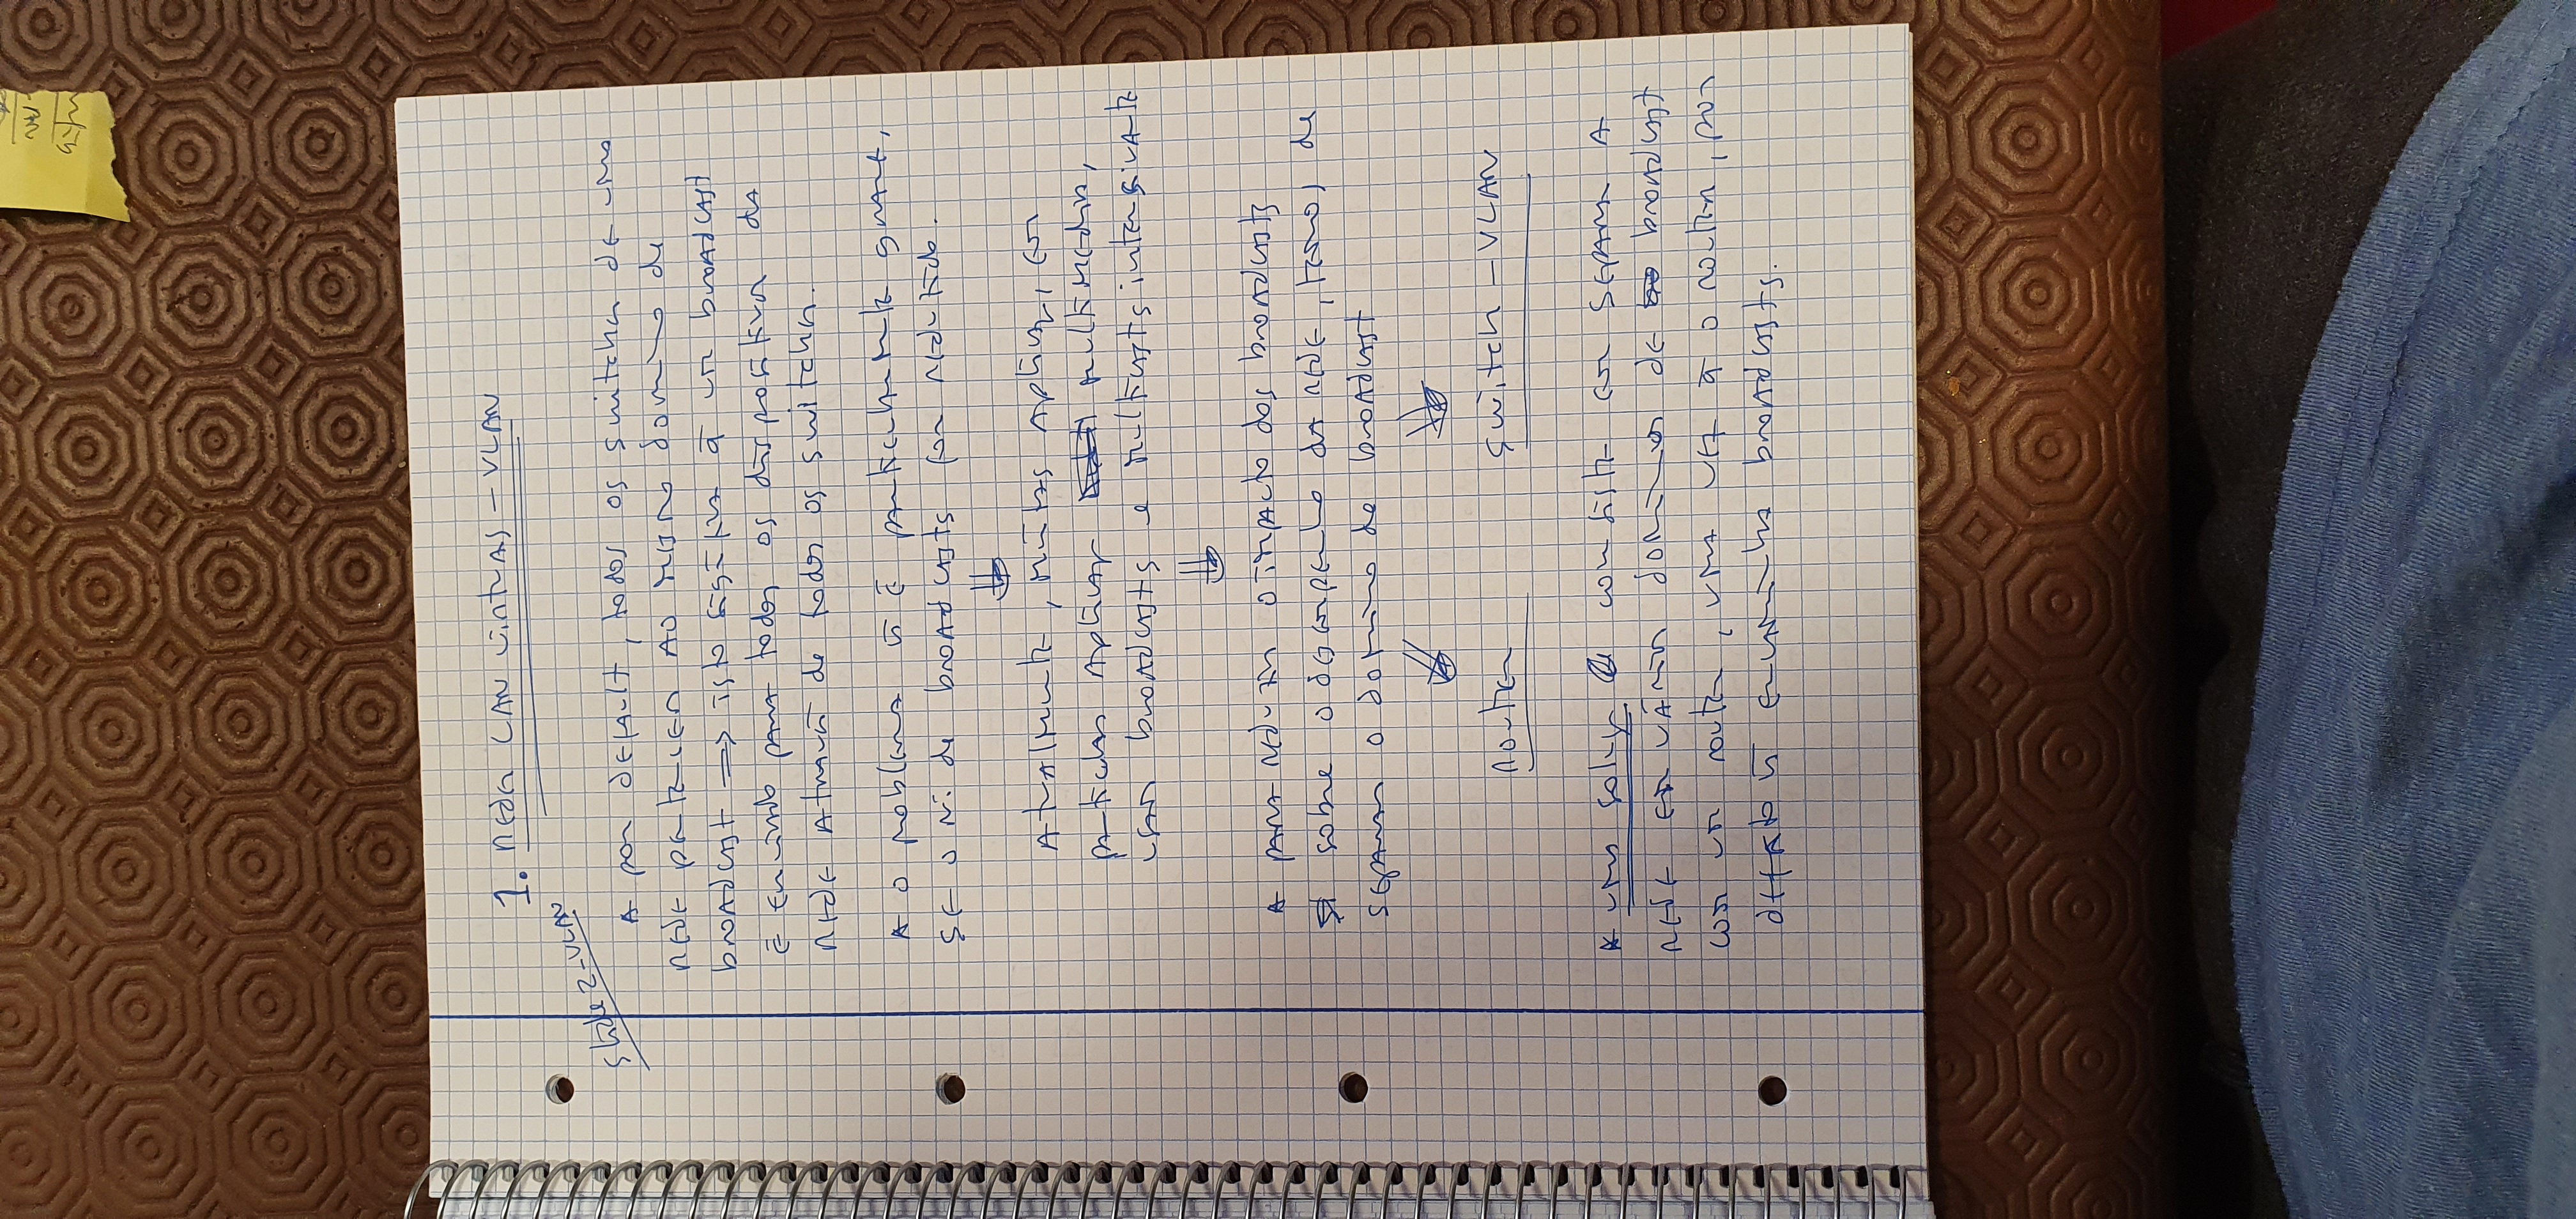 1. redes LAN virtuais - VLAN
slide 2 - VLAN
por default, todos os switches de uma
rede pertencem ao mesmo domínio de
broadcast => isto significa q̃ um broadcast
é enviado para todos os dispositivos da
rede através de todos os switches.
o problema ñ é particularmente grave,
se o nº de broadcasts for reduzido.
Atualmente, muitas aplicaç, em
particular aplicaç multimedia,
usam broadcasts e multicasts intensivamente
para reduzir o impacto dos broadcasts
sobre o desempenho da rede, temos de
separar o domínio de broadcast
router
switch - VLAN
uma soluç consiste em separar a
rede em vários domínios de broadcast
com um router, uma vez q̃ o router, por
defeito ñ encaminha broadcasts.